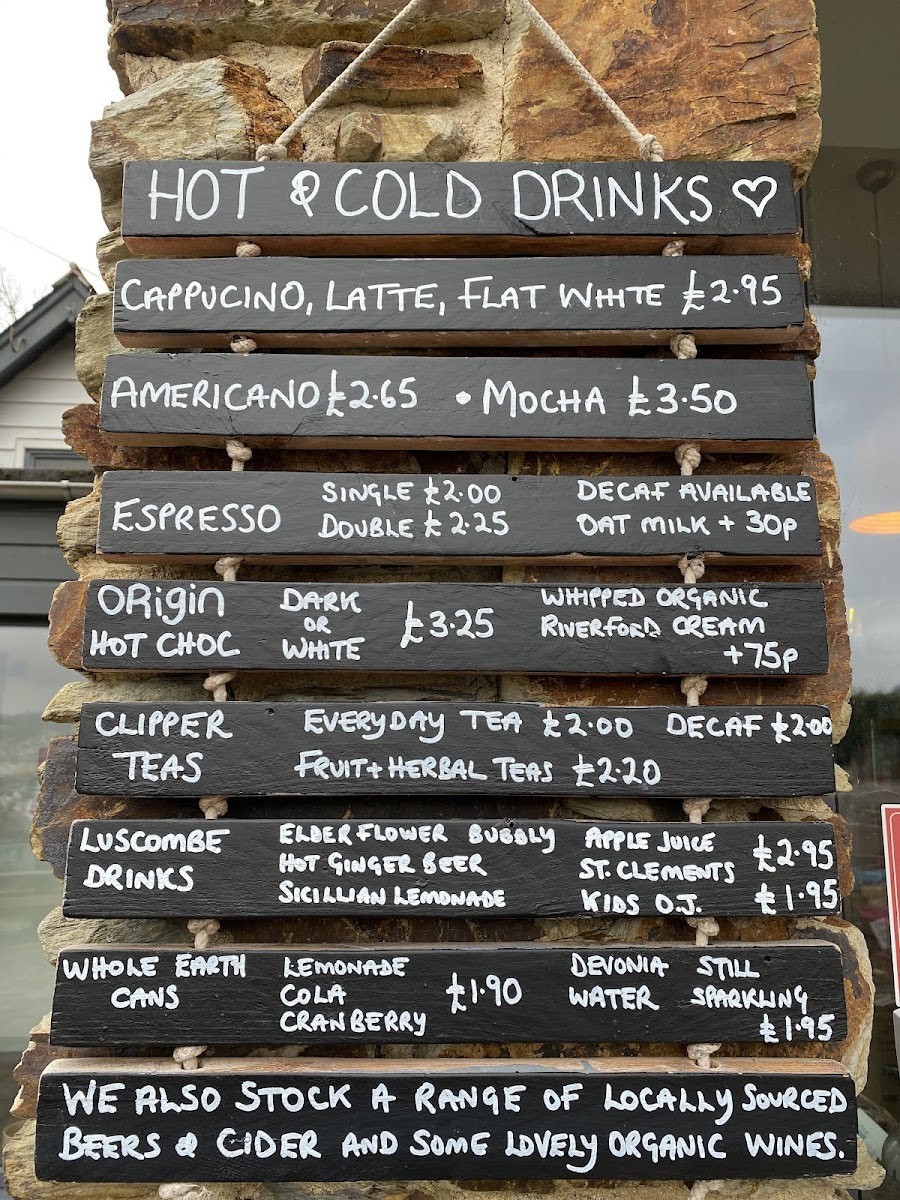 HOT & COLD DRINKS ♡
CAPPUCINO, LATTE, FLAT WHITE £2.95
AMERICANO £2.65 • MOCHA £3.50
ESPRESSO
SINGLE £2.00
DOUBLE £2.25
DECAF AVAILABLE
OAT MILK + 30p
ORigin
HOT CHOC
DARK
OR
WHITE
£3.25
WHIPPED ORGANIC
RIVERFORD CREAM
+75p
CLIPPER
TEAS
EVERYDAY TEA £2.00 DECAF £2.00
FRUIT + HERBAL TEAS £2.20
LUSCOMBE
DRINKS
ELDERFLOWER BUBBLY
HOT GINGER BEER
SICILLIAN LEMONADE
APPLE JUICE
ST. CLEMENTS
£2.95
KIDS O.J. £1.95
WHOLE EARTH
CANS
LEMONADE
COLA
CRANBERRY
£1.90
DEVONIA
WATER
STILL
SPARKLING
£1.95
WE ALSO STOCK A RANGE OF LOCALLY SOURCED
BEERS & CIDER AND SOME LOVELY ORGANIC WINES.